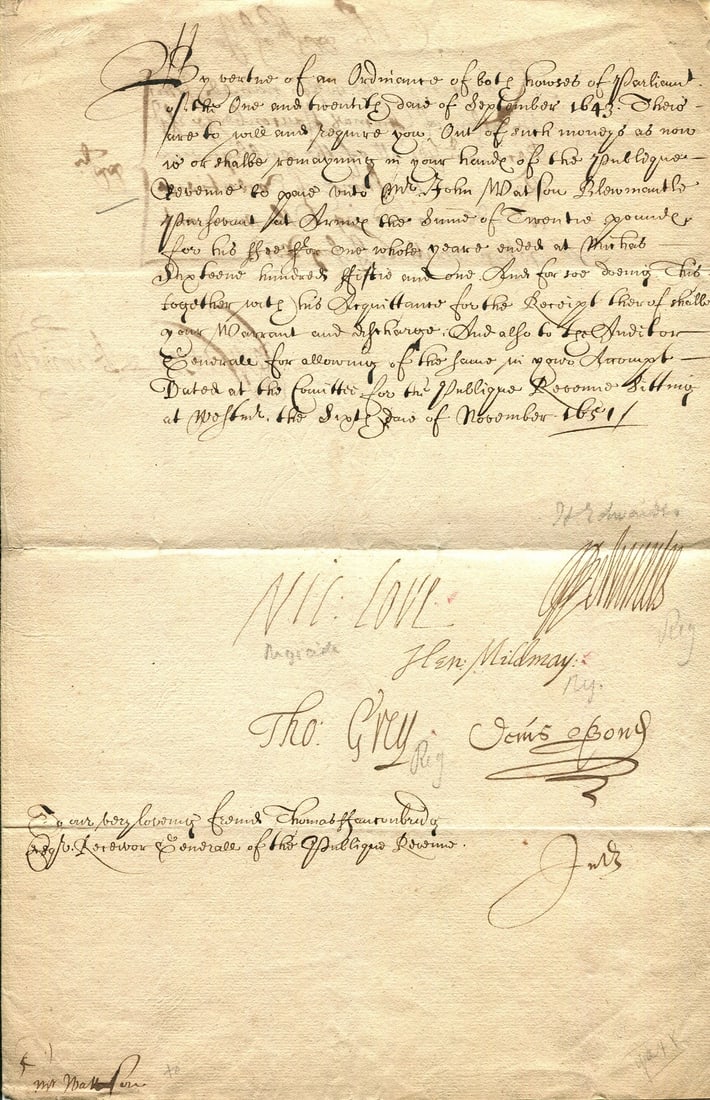 By vertue of an Ordinance of both howses of Parliamt.
of the One and twentith daie of September 1643 Theis
are to will and require you, Out of such moneys as now
is or shalbe remayning in your handes of the Publique
Revenue to paie unto Mr. John Watson Blewmantle
Pursevant at Armes the Summe of Twentie poundes
for his ffee ffor one whole yeare ended at Michas
Sixteene hundred fiftie and one And for soe doeing This
together with his Acquittance for the Receipt therof shalbe
your Warrant and discharge. And also to the Auditor
Generall for allowing of the same in your Accompt
Dated at the Comittee for the Publique Revenue Sitting
at Westmr. the Sixth daie of November 1651/
H Edwardes
Nic: Love
Regicide
Reg
Hen: Mildmay:
Rg.
Tho: Grey
Reg
Denis Bond
To our very loveing freind Thomas ffauconbridg
Esqr. Receivor Generall of the Publique Revenue.
Mr Wattson